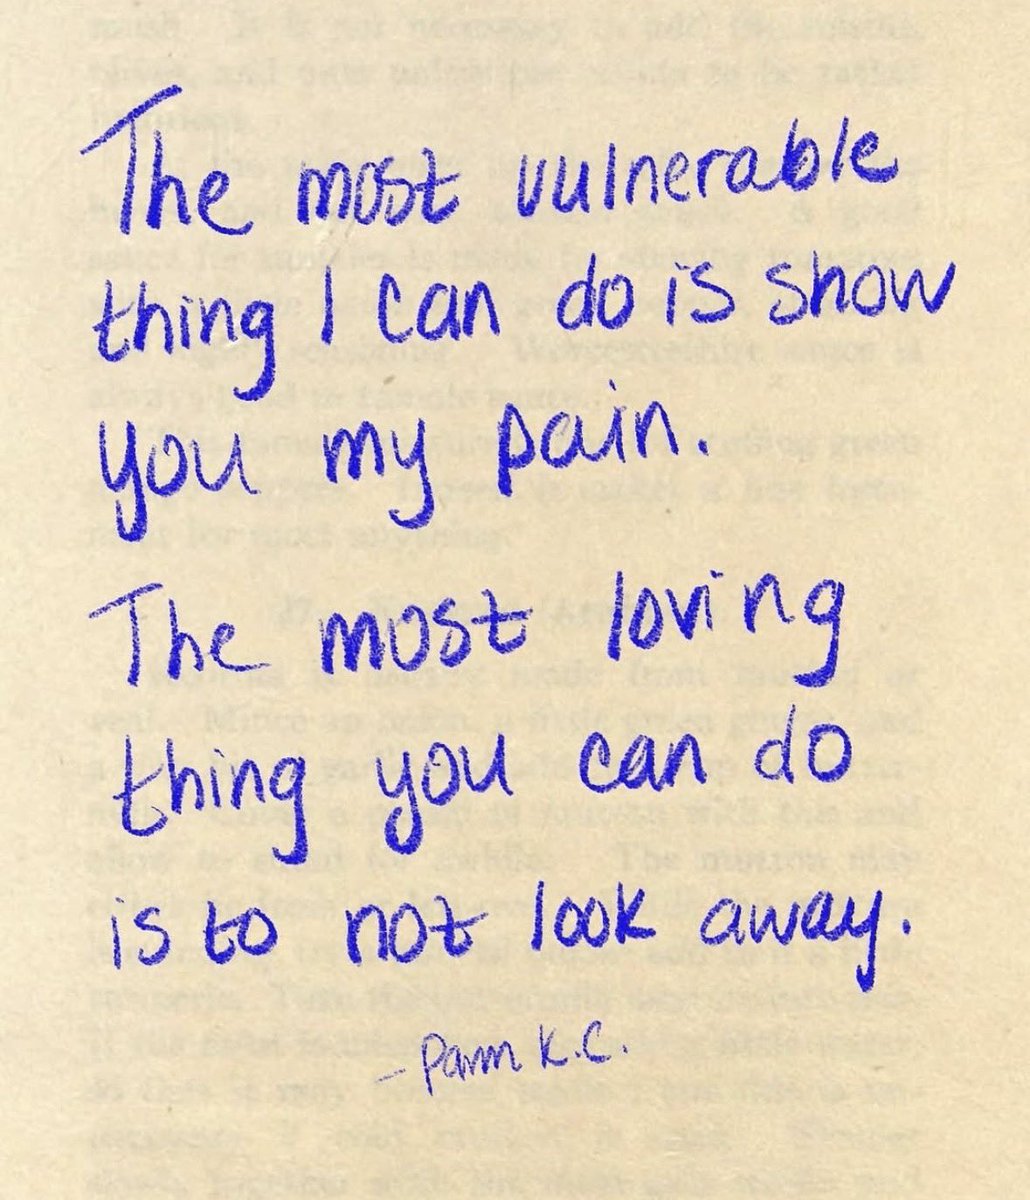 The most vulnerable
thing I can do is show
you my pain.
The most loving
thing you can do
is to not look away.
- Parm K.C.